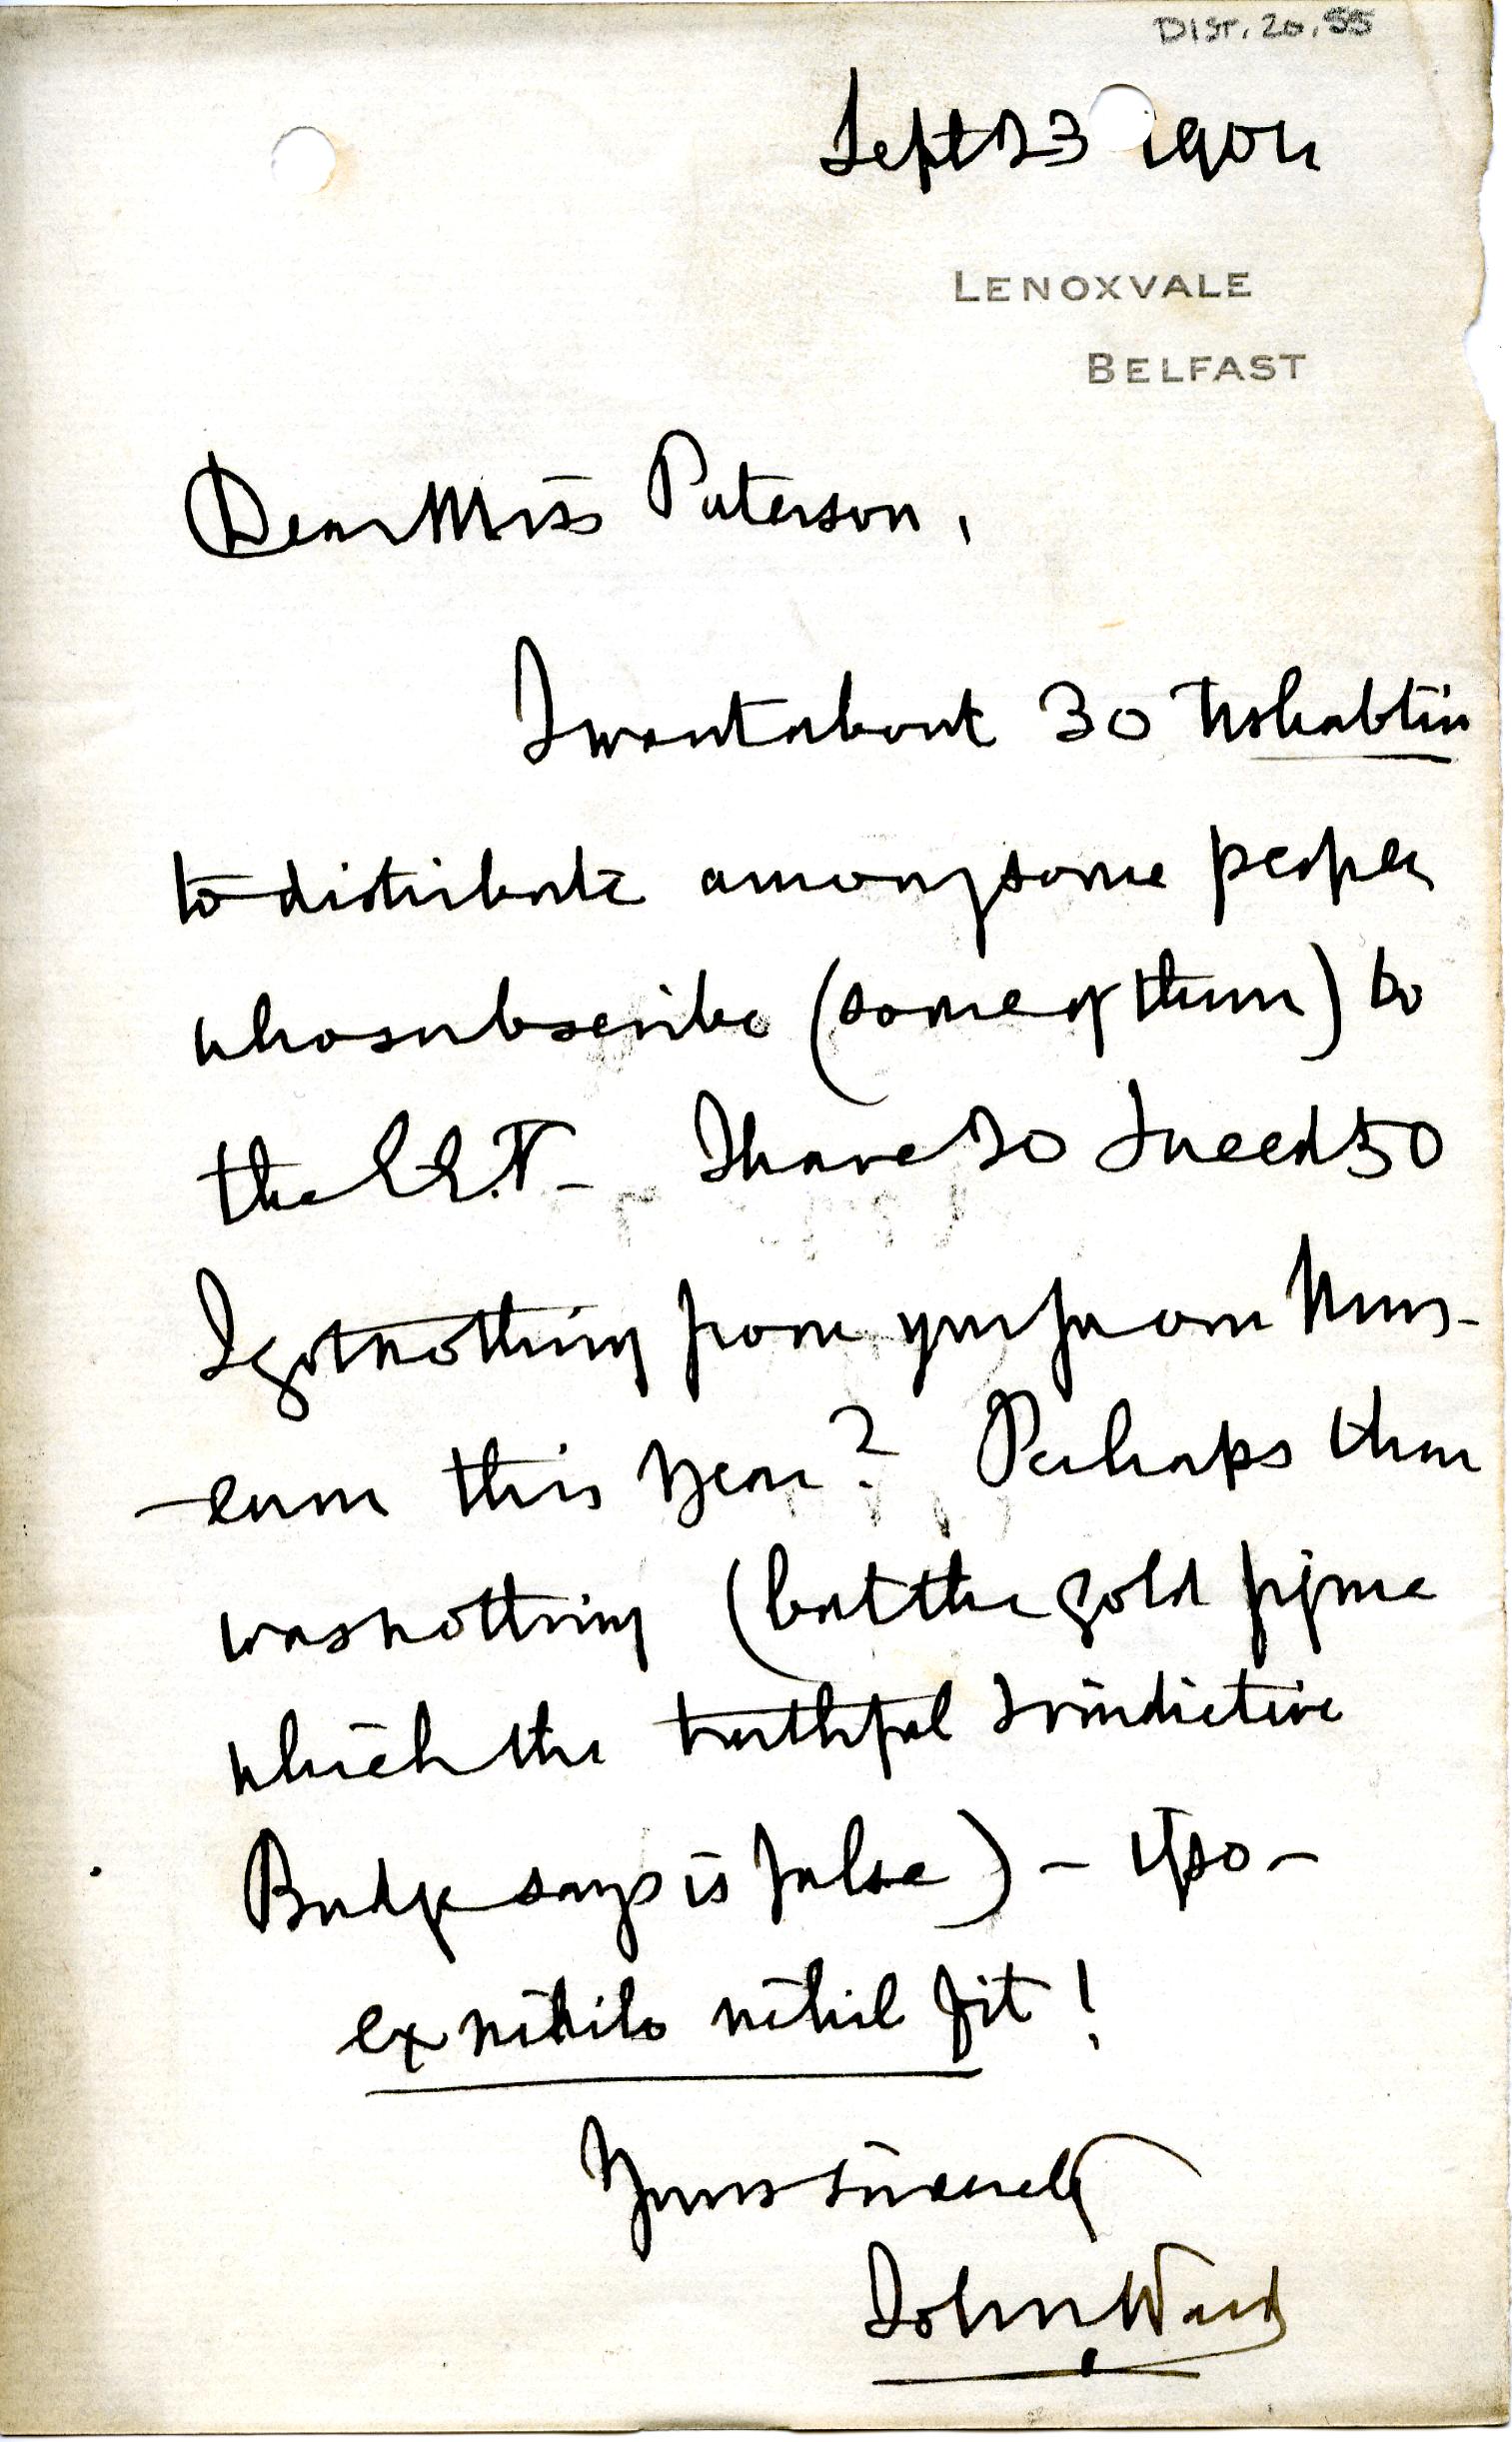 DIST. 20. 55
Sept 23 1904
LENOXVALE
BELFAST
Dear Miss Paterson,
I want about 30 Ushabtiu
to distribute among some people
who subscribe (some of them) to
the E.E.F. - I have 20 I need 50
I got nothing from you for our Mus-
-eum this year? Perhaps there
was nothing (but the gold figure
which the truthful & vindictive
Budge says is false) - if so -
ex nihilo nihil fit!
Yours sincerely
John Ward